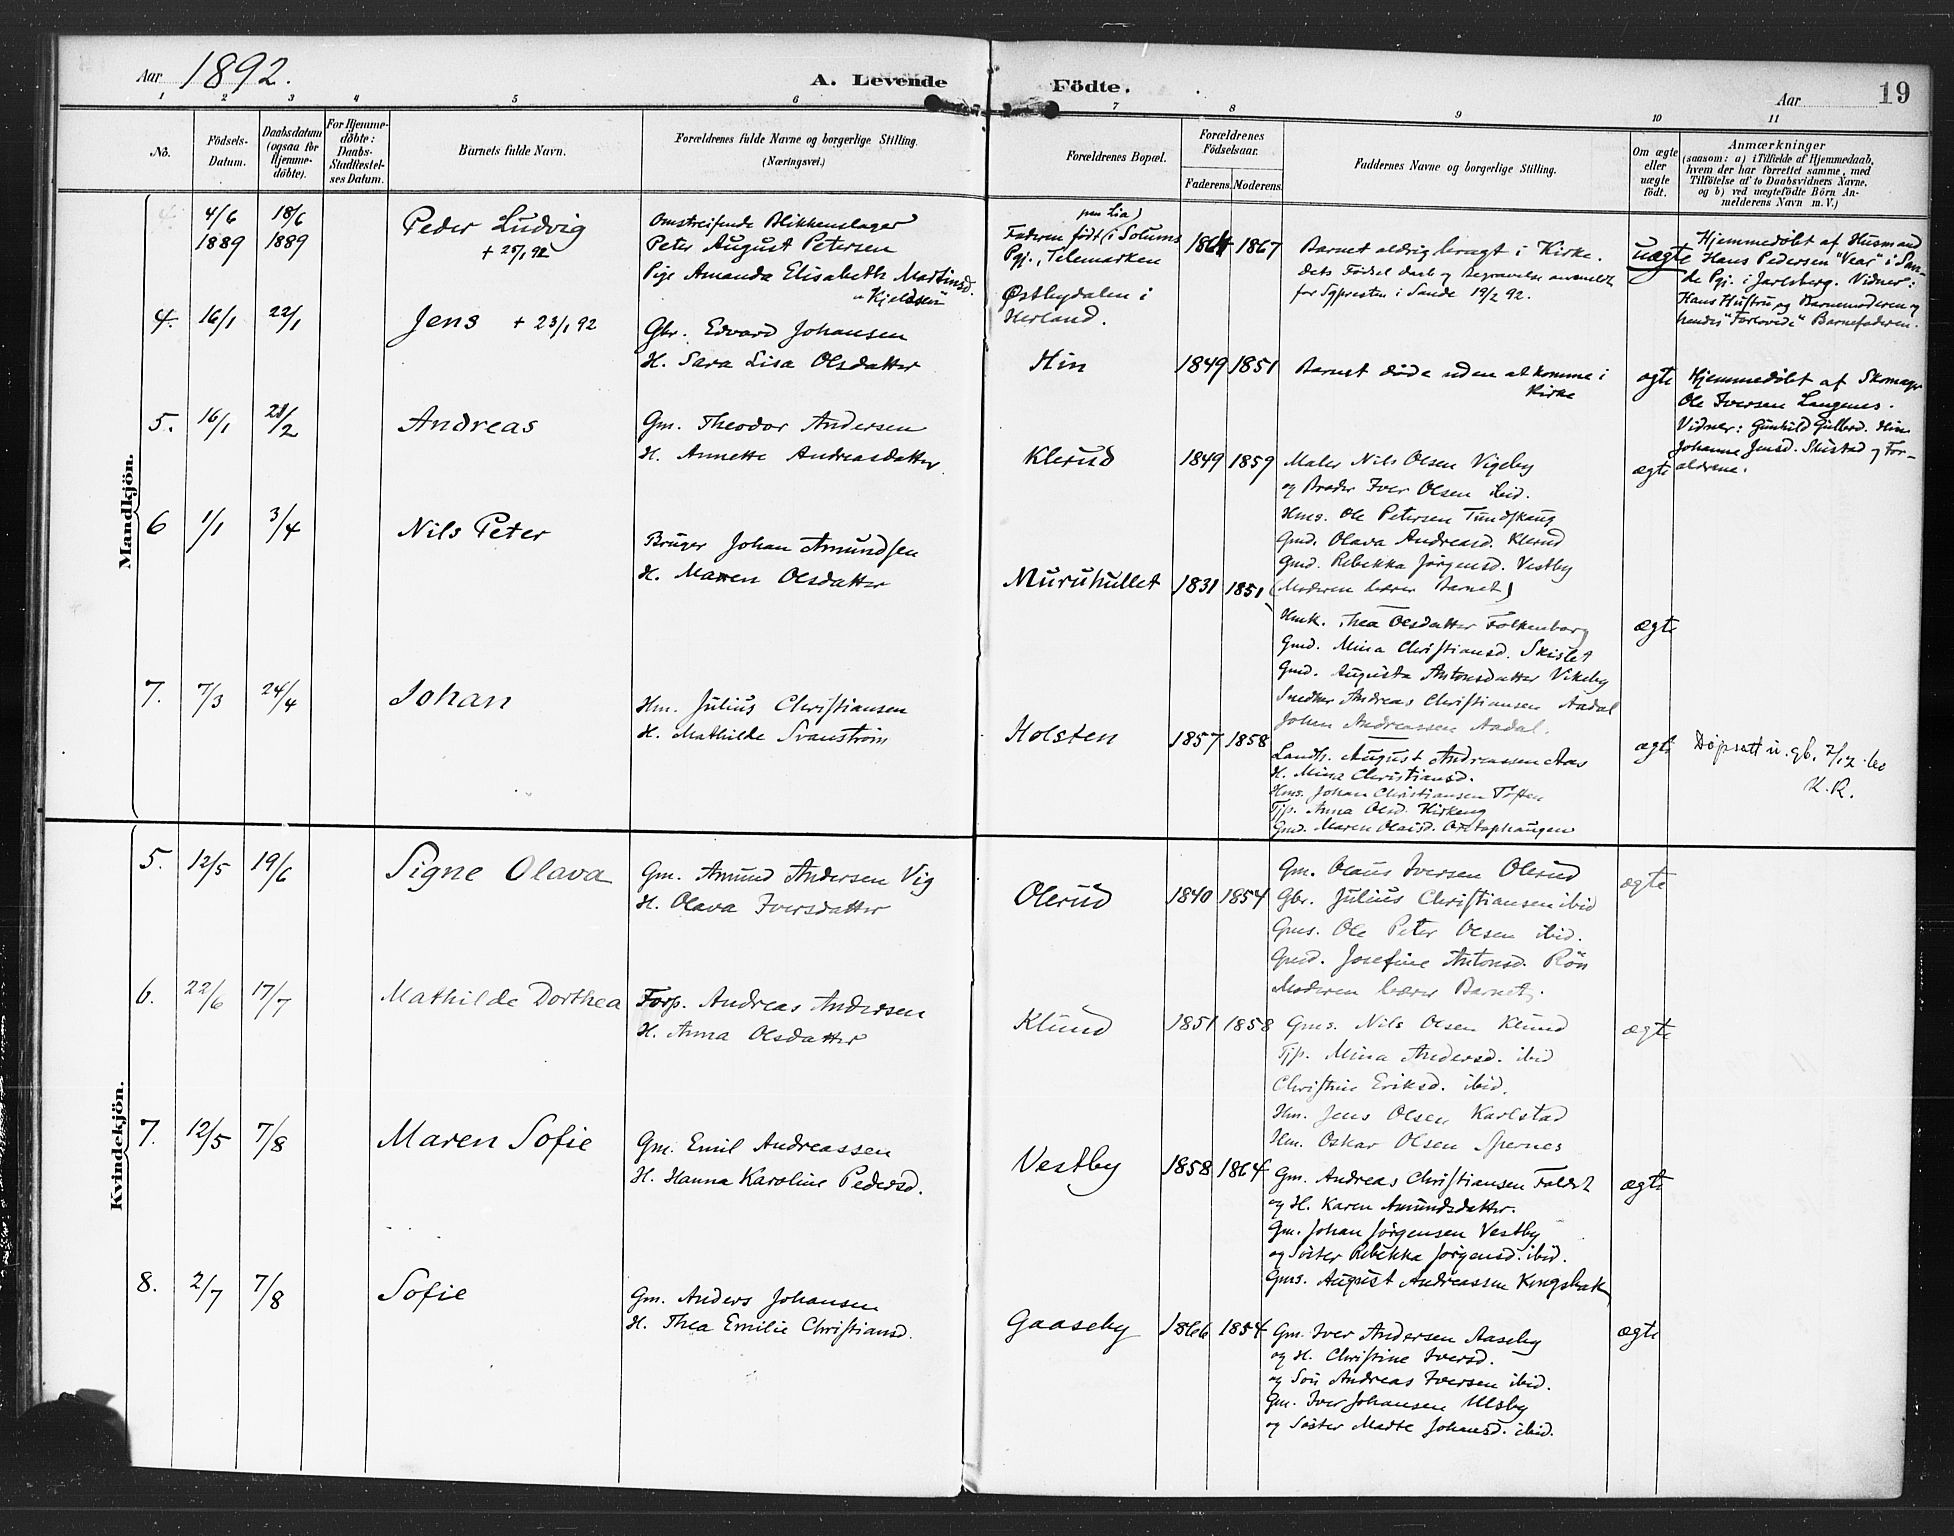 Aar 1892.
A. Levende Födte.
Aar
19
1 2 3 4 5 6 7 8 9 10 11
No.
Födsels-
Datum.
Daabsdatum
(ogsaa for
Hjemme-
döbte).
For Hjemme-
döbte:
Daabs-
Stadfæstel-
ses Datum.
Barnets fulde Navn.
Forældrenes fulde Navne og borgerlige Stilling.
(Næringsvei.)
Forældrenes Bopæl.
Forældrenes
Födselsaar.
Faderens. Moderens.
Faddernes Navne og borgerlige Stilling.
Om ægte
eller
uægte
födt.
Anmærkninger
(saasom: a) i Tilfælde af Hjemmedaab,
hvem der har forrettet samme, med
Tilföielse af to Daabsvidners Navne,
og b) ved uægtefödte Börn An-
melderens Navn m. V.)
Mandkjön.
4/6 1889
18/6 1889
Peder Ludvig
+ 25/1 92
Omstreifende Blikkenslager
Peter August Petersen
Pige Amanda Elisabeth Martinsd.
Kjeldsen
Faderen født (i Solums
Pgj., Telemarken
Østbydalen i
Herland.
1864 1867
Barnet aldrig bragt i Kirke.
dets Fødsel daab og Begravelse anmeldt
for Sgpresten i Sande 19/2 92.
uægte
Hjemmedøbt af Husmand
Hans Pedersen "Vear" i San-
de Pgj. i Jarlsberg. Vidner:
Hans Hustru og Barnemoderen og
hendes "Forlovede" Barnefaderen.
4. 16/1 22/1
Jens + 23/1 92
Gbr. Edvard Johansen
H. Sara Lisa Olsdatter
Hin
1849 1851
Barnet døde uden at komme i
Kirke
ægte
Hjemmedøbt af Skomager
Ole Iversen Langenes.
Vidner: Gunhild Gulbrd. Hin
Johanne Jensd. Skistad og For-
ældrene.
5. 16/1 28/2
Andreas
Gm. Theodor Andersen
H. Annette Andreasdatter
Klerud
1849 1859
Maler Nils Olsen Vigeby
og Broder Iver Olsen ibid.
Hms. Ole Petersen Tundskaug
Gmd. Olava Andreasd. Klerud
Gmd. Rebekka Jørgensd. Vestby
(Moderen bærer Barnet)
ægte
6 1/1 3/4
Nils Peter
Bruger Johan Amundsen
H. Maren Olsdatter
Muruhullet
1831 1851
Hmk. Thea Olsdatter Falkenborg
Gmd. Mina Christiansd. Skislet
Gmd. Augusta Antonsdatter Vikeby
Snedker Andreas Christiansen Aadal
Johan Andreassen Aadal.
ægte
7. 7/3 24/4
Johan
Hm. Julius Christiansen
H. Mathilde Svanström
Holsten
1857 1858
Landh. August Andreassen Aas
H. Mina Christiansd.
Hms. Johan Christiansen Toften
Tjp. Anna Olsd. Kirkeng
Gmd. Maren Olaisd.
ægte
Døpsatt u. gb. 7/12
K.R.
Kvindekjön.
5. 12/5 19/6
Signe Olava
Gm. Amund Andersen Vig
H. Olava Iversdatter
Olerud
1840 1854
Gm. Olaus Iversen Olerud
Gbr. Julius Christiansen ibid
Gms. Ole Peter Olsen ibid.
Gmd. Josefine Antonsd. Rön
Moderen bærer Barnet.
ægte
6. 22/6 17/7
Mathilde Dorthea
Forp. Andreas Andersen
H. Anna Olsdatter
Klund
1851 1858
Gms. Nils Olsen Klund
Tjp. Mina Andersd. ibid
Christine Eriksd. ibid.
Hm. Jens Olsen Karlstad
Hm. Oskar Olsen Spernes
ægte
7. 12/5 7/8
Maren Sofie
Gm. Emil Andreassen
H. Hanna Karoline Pedersd.
Vestby
1858 1864
Gm. Andreas Christiansen Foldt
og H. Karen Amundsdatter.
Gm. Johan Jørgensen Vestby
og Söster Rebekka Jørgensd. ibid.
Gms. August Andreassen Kongsbak
ægte
8. 2/7 7/8
Sofie
Gm. Anders Johansen
H. Thea Emilie Christiansd.
Gaaseby
1866 1854
Gm. Iver Andersen Aaseby
og H. Christine Iversd.
og Sön Andreas Iversen ibid.
Gm. Iver Johansen Ulsby
og Söster Madte Johansd. ibid.
ægte